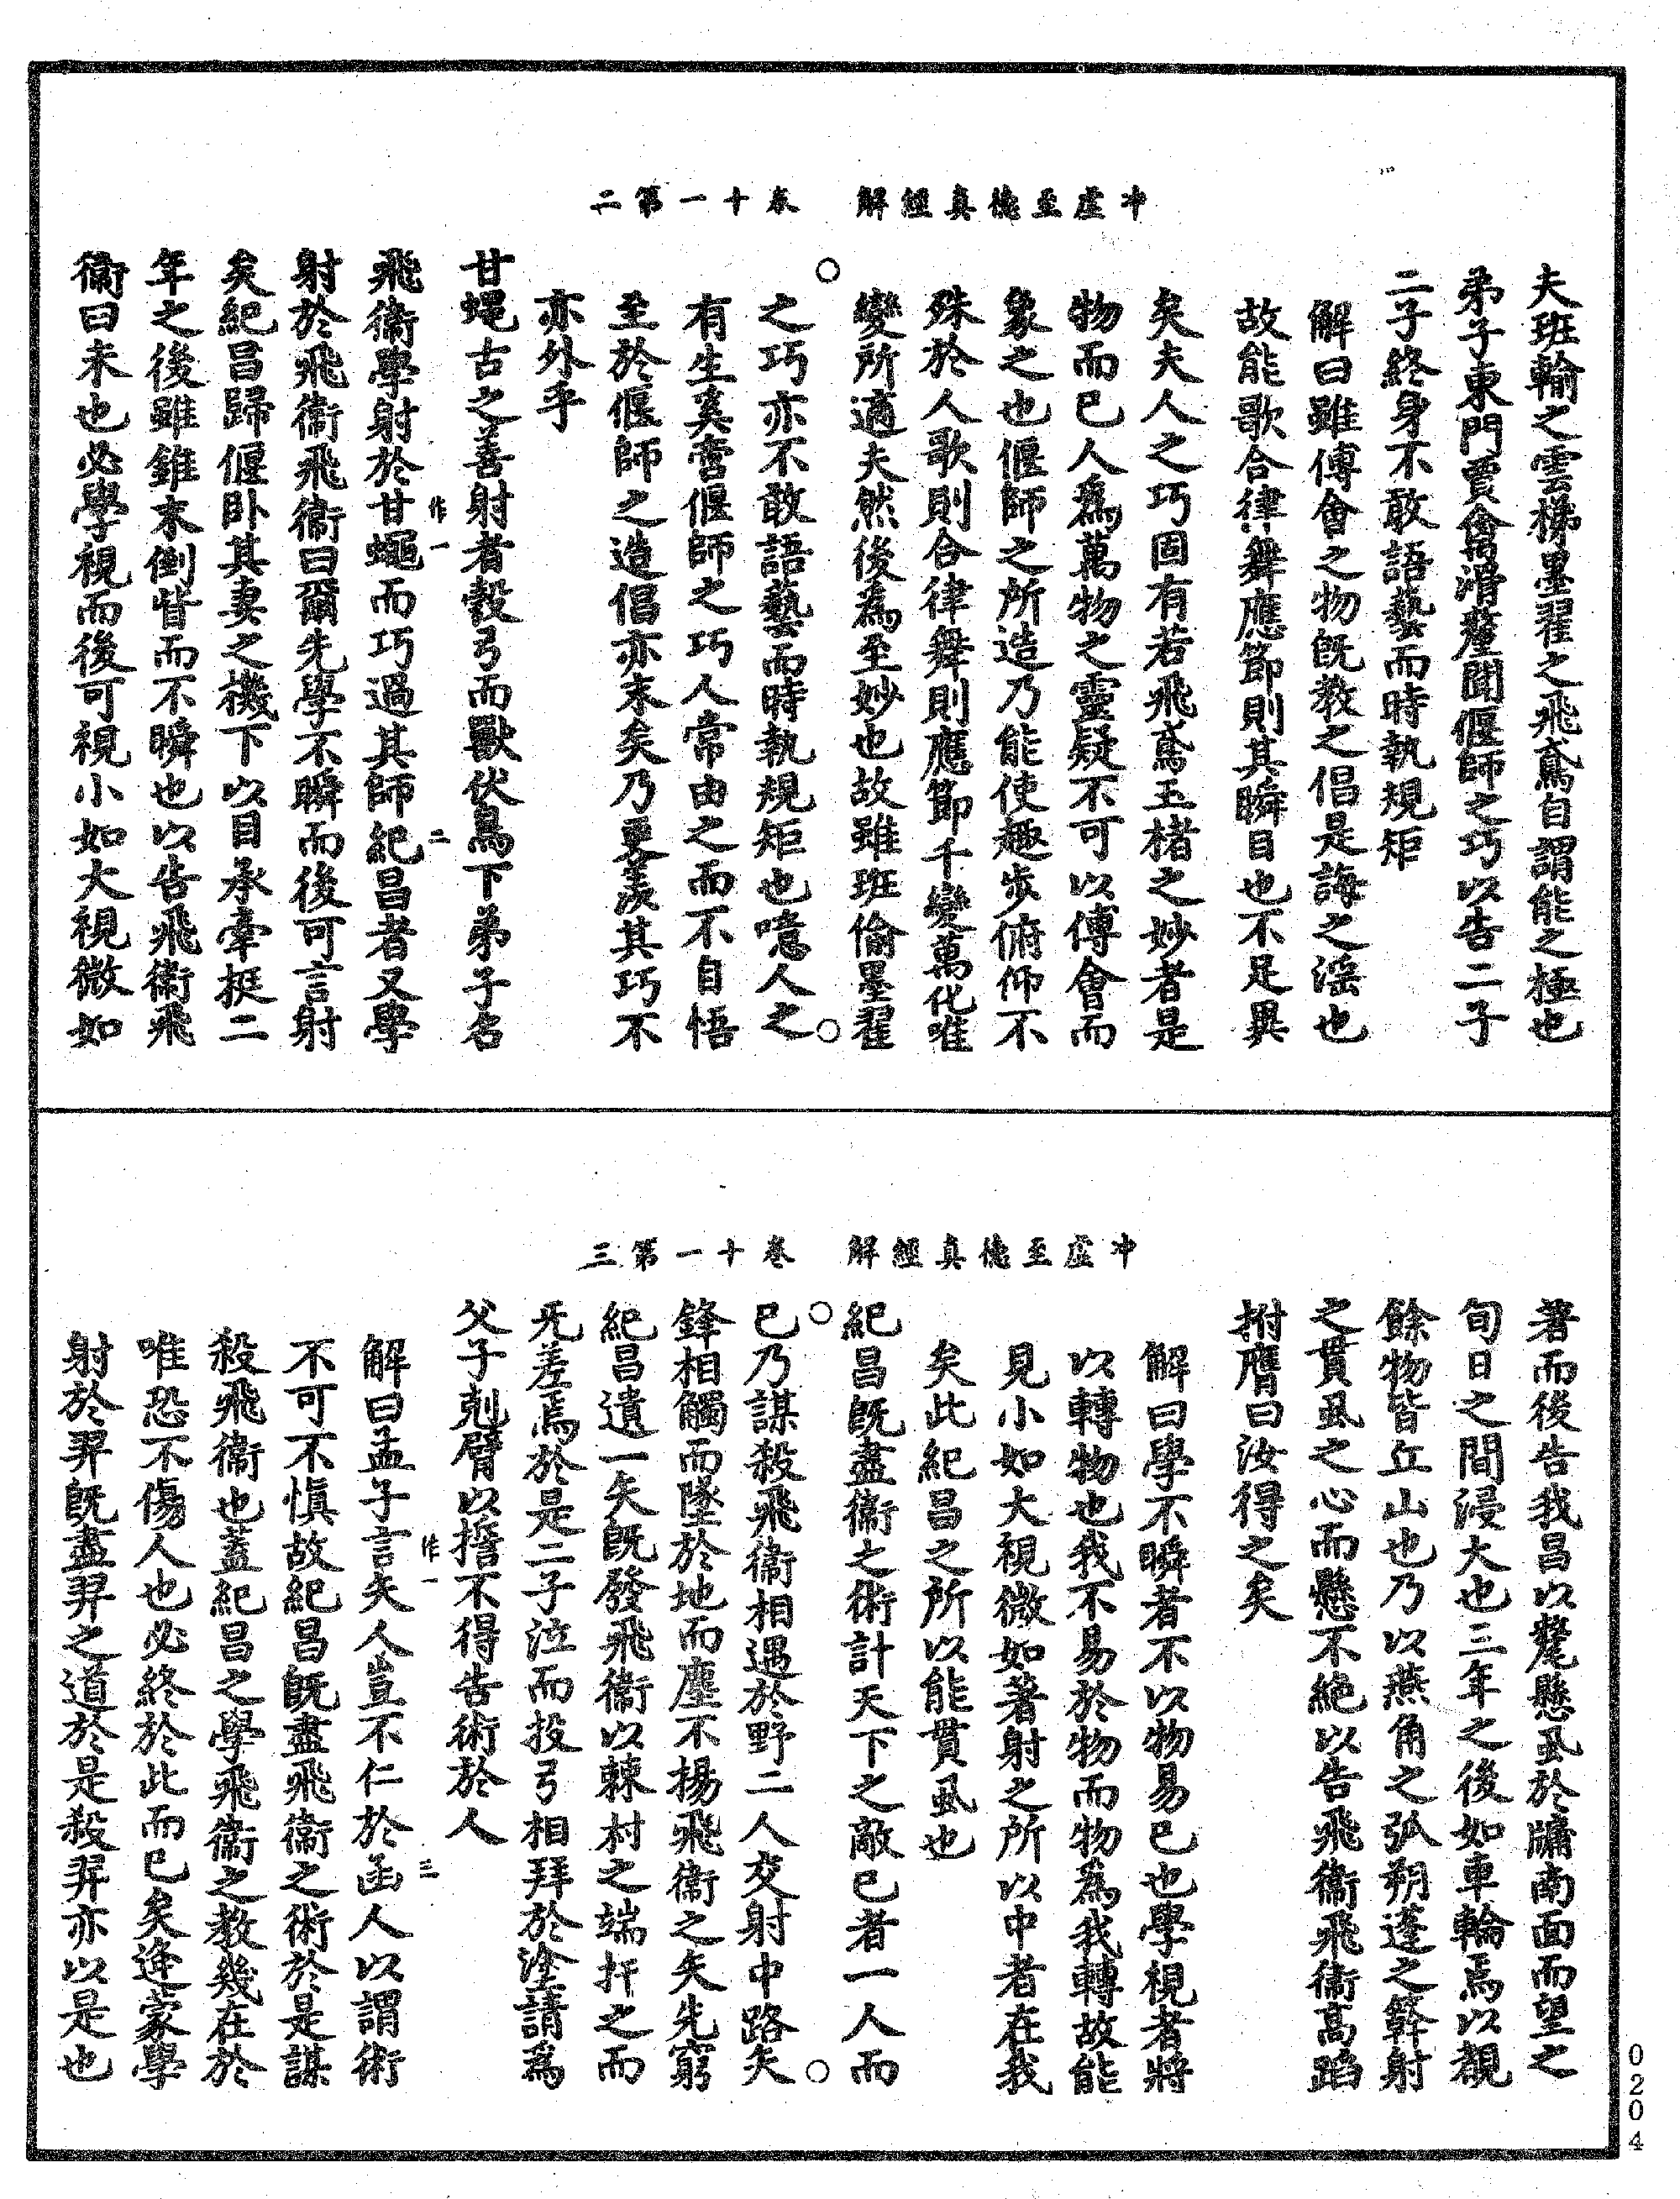 冲虛至德真經解　卷十一第二
夫班輸之雲梯墨翟之飛鳶自謂能之極也
弟子東門賈禽滑釐聞偃師之巧以告二子
二子終身不敢語藝而時執規矩
解曰雖傅會之物旣教之倡是誨之滛也
故能歌合律舞應節則其瞬目也不足異
矣夫人之巧固有若飛鳶玉楮之妙者是
物而已人爲萬物之靈疑不可以傅會而
象之也偃師之所造乃能使趣步俯仰不
殊於人歌則合律舞則應節千變萬化唯
變所適夫然後為至妙也故雖班倫墨翟
之巧亦不敢語藝而時執規矩也噫人之
有生奚啻偃師之巧人常由之而不自悟
至於偃師之造倡亦末矣乃更羨其巧不
亦外乎
甘蠅古之善射者彀弓而獸伏鳥下弟子名
飛衞學射於甘蠅而巧過其師紀昌者又學
射於飛衞飛衞曰爾先學不瞬而後可言射
矣紀昌歸偃卧其妻之機下以目承牽挺二
年之後雖錐末倒眥而不瞬也以告飛衞飛
衞曰未也必學視而後可視小如大視微如
作一
二
冲虛至德真經解　卷十一第三
著而後告我昌以氂懸虱於牖南面而望之
旬日之間浸大也三年之後如車輪焉以覩
餘物皆丘山也乃以燕角之弧朔蓬之簳射
之貫虱之心而懸不絕以告飛衞飛衞高蹈
拊膺曰汝得之矣
解曰學不瞬者不以物易已也學視者將
以轉物也我不易於物而物為我轉故能
見小如大視微如著射之所以中者在我
矣此紀昌之所以能貫虱也
紀昌旣盡衞之術計天下之敵已者一人而
已乃謀殺飛衞相遇於野二人交射中路矢
鋒相觸而墜於地而塵不揚飛衞之矢先窮
紀昌遺一矢旣發飛衞以棘村之端扞之而
无差焉於是二子泣而投弓相拜於塗請為
父子剋臂以誓不得告術於人
解曰孟子言矢人豈不仁於函人以謂術
不可不慎故紀昌旣盡飛衞之術於是謀
殺飛衞也蓋紀昌之學飛衞之教幾在於
唯恐不傷人也必終於此而已矣逄蒙學
射於羿旣盡羿之道於是殺羿亦以是也
作一
三
0204